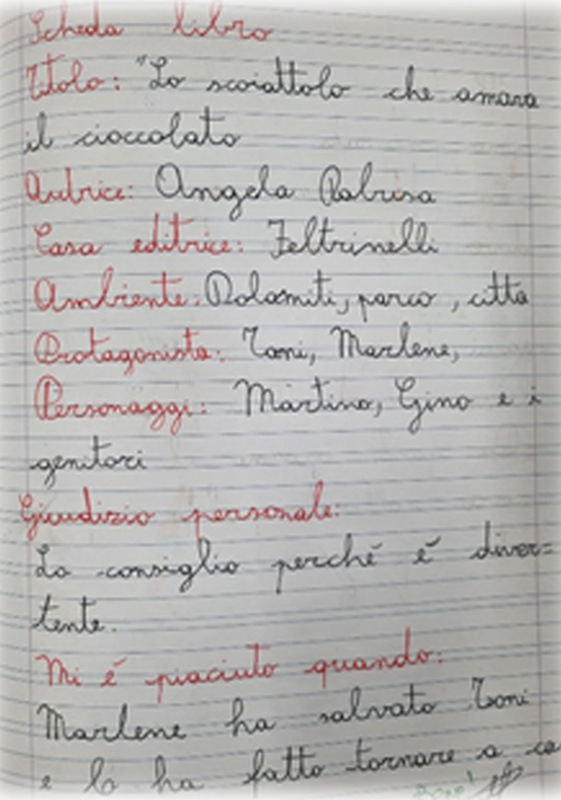 Scheda libro
Titolo: "Lo scoiattolo che amava
il cioccolato
Autrice: Angela
Casa editrice: Feltrinelli
Ambiente: Dolomiti, parco, città
Protagonista: Toni, Marlene,
Personaggi: Martino, Gino e i
genitori
Giudizio personale:
Lo consiglio perché é diver=
tente.
Mi é piaciuto quando:
Marlene ha salvato Toni
e lo ha fatto tornare a ca